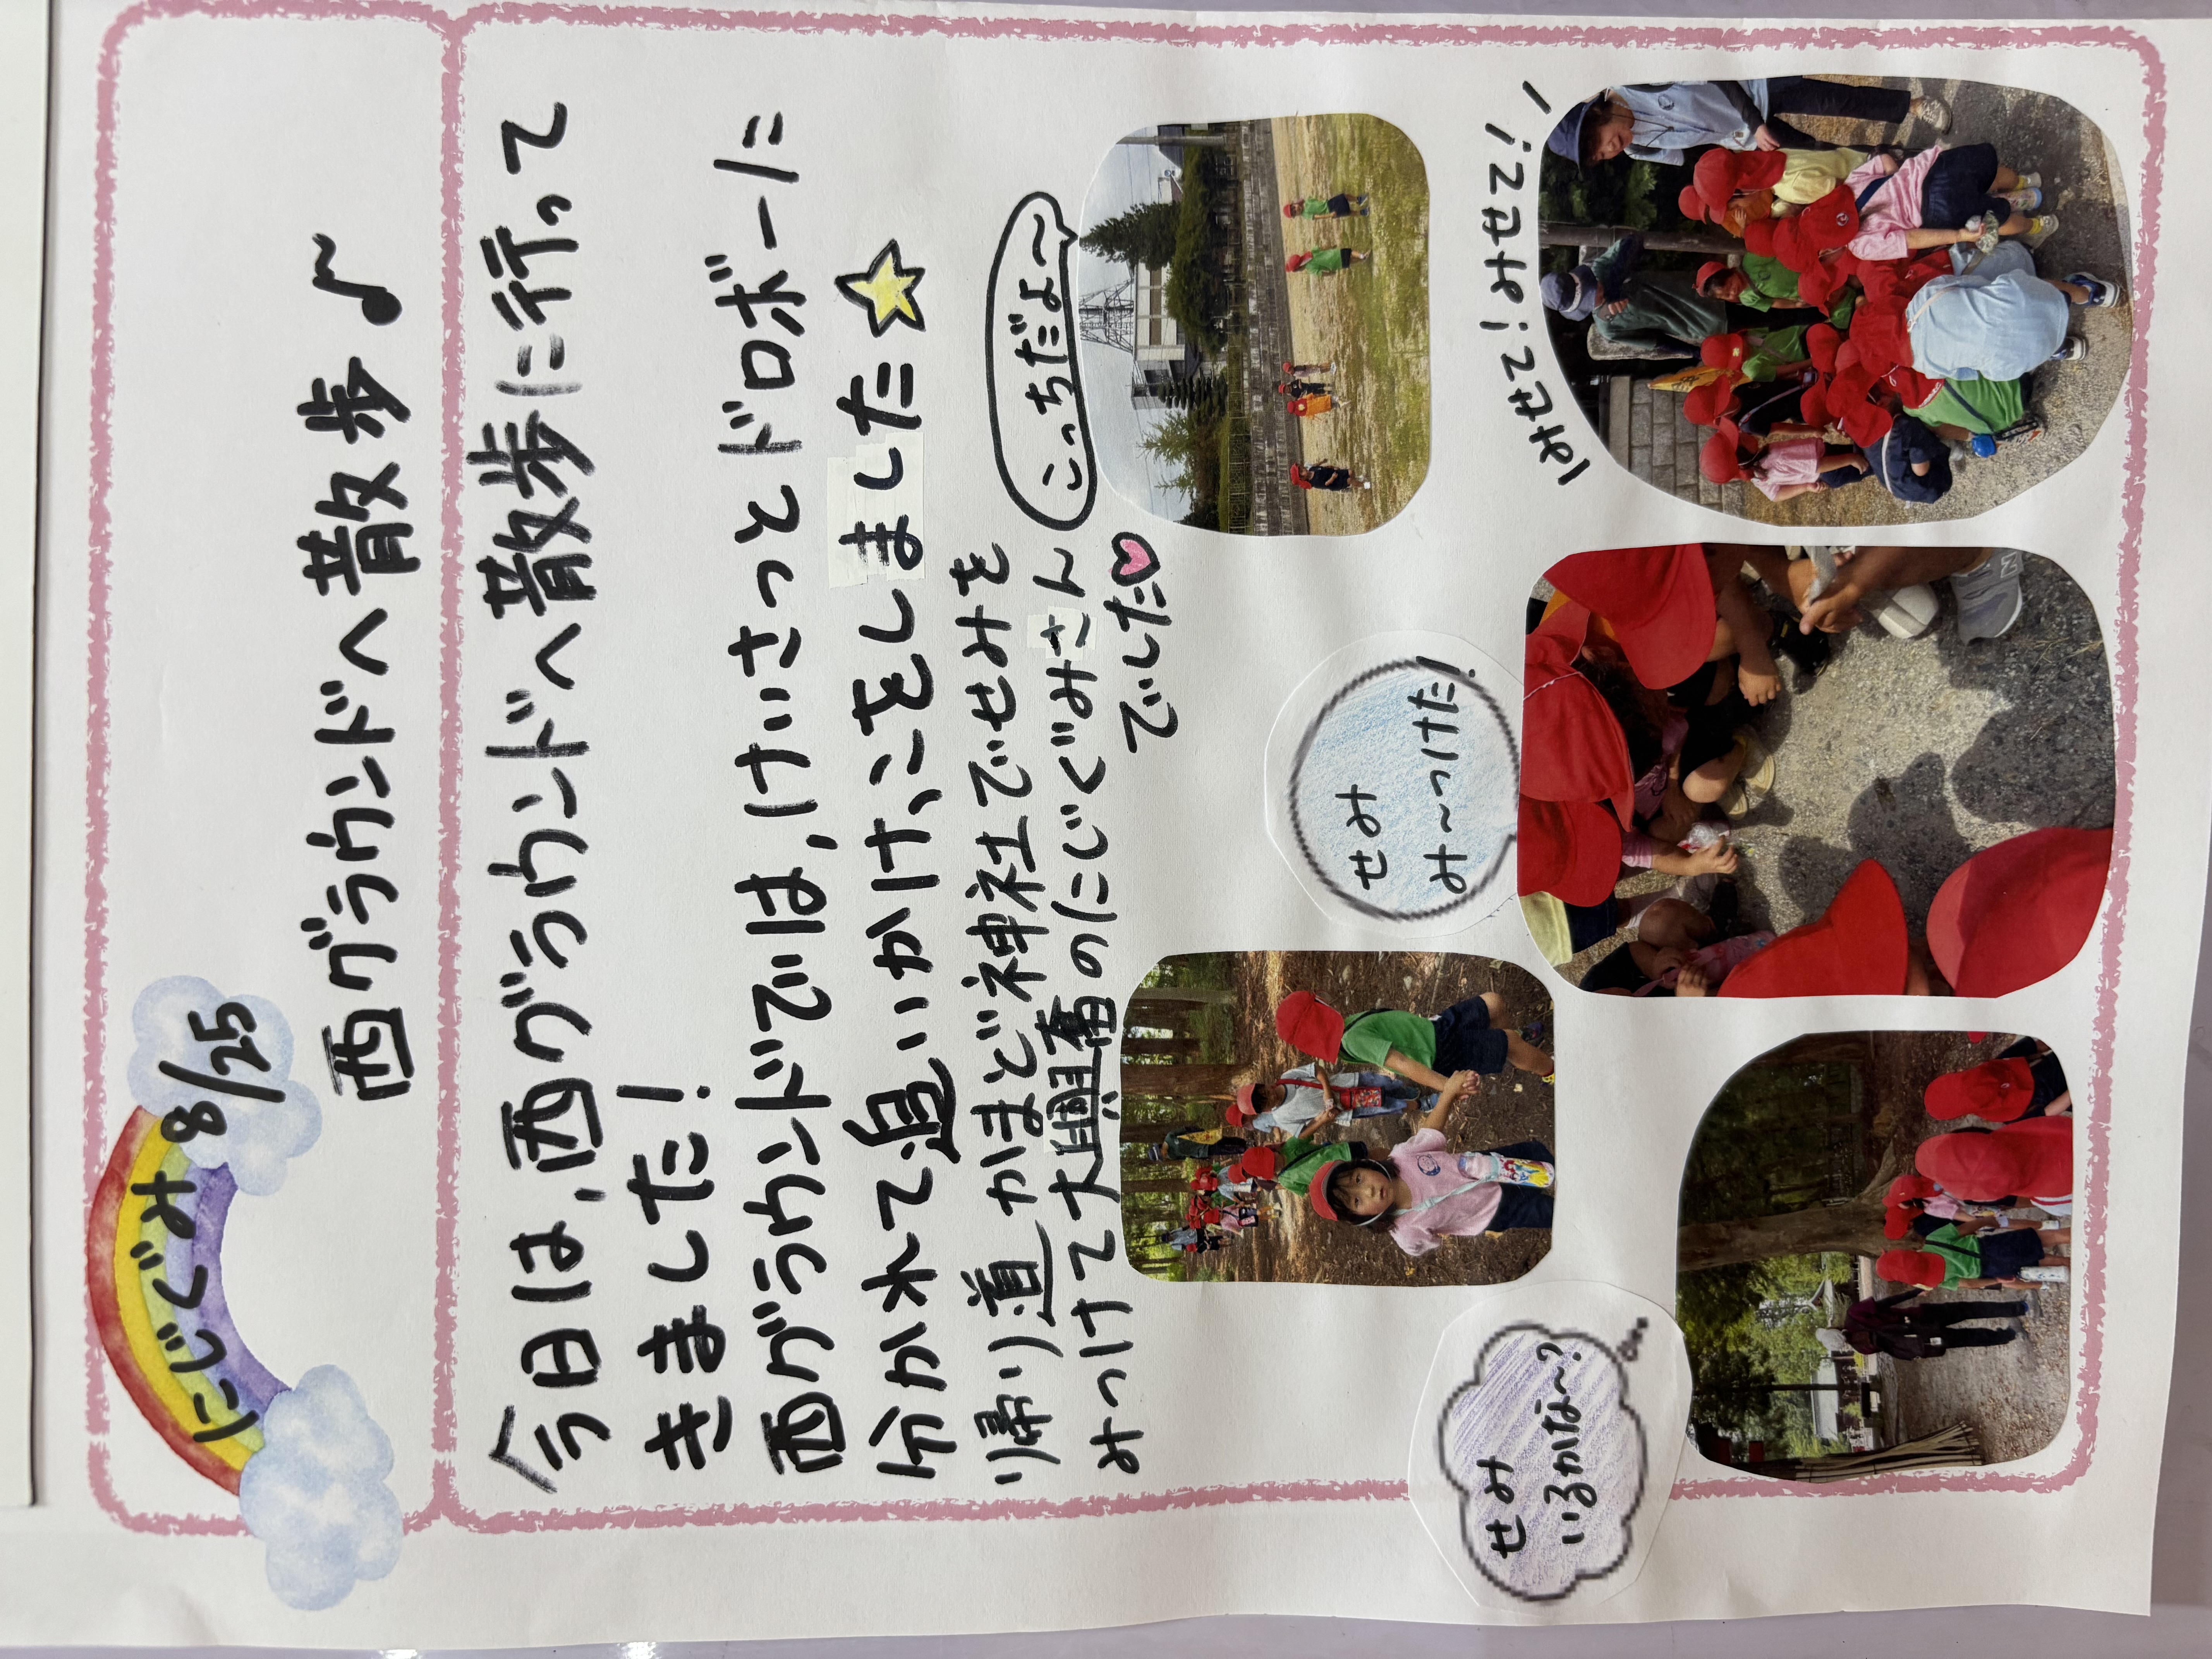 にじぐみ 8/25
西グラウンドへ散歩♪
今日は、西グラウンドへ散歩に行って
きました!
西グラウンドでは、けいさつとドロボーに
分かれて追いかけっこをしました☆
帰り道かまど神社でせみを
みつけて大興奮のにじぐみさん
でした♡
こっちだよ〜
せみ
いるかな〜?
せみ
み〜つけた!
みせて!みせて!